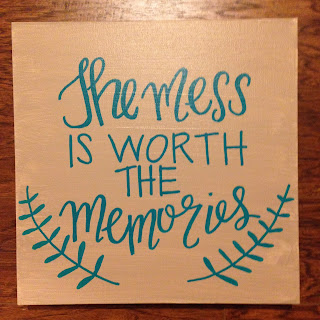 The mess
IS WORTH
THE
memories